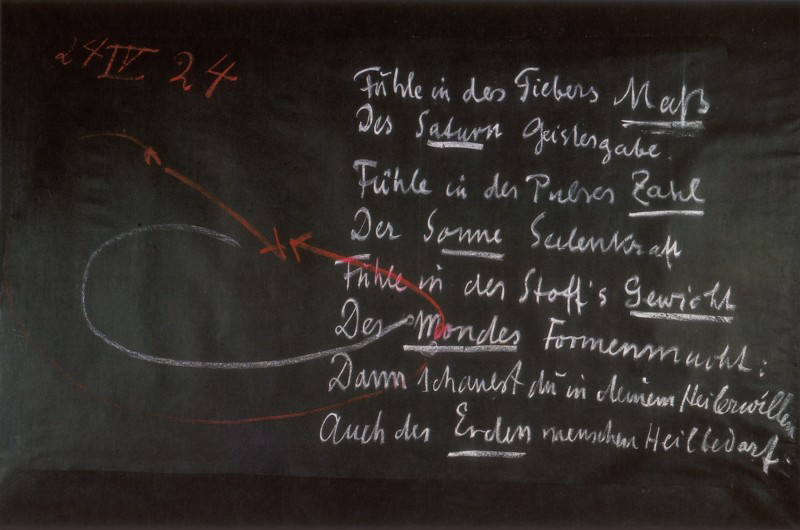 24 IV 24
Fühle in des Fiebers Maß
Des Saturn Geistesgabe.
Fühle in des Pulses Zahl
Der Sonne Seelenkraft
Fühle in des Stoff's Gewicht
Des Mondes Formenmacht:
Dann schauest du in deinem Heilerwillen
Auch des Erdenmenschen Heilbedarf.